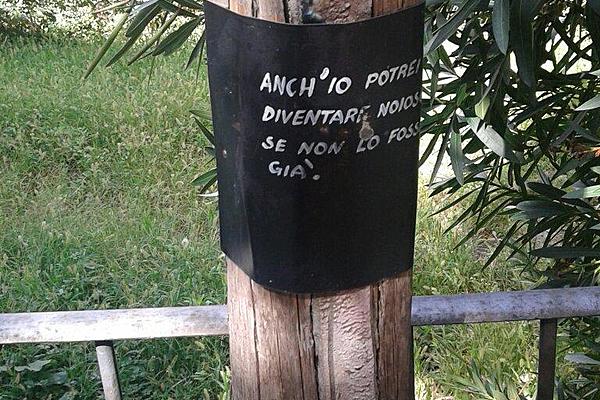 ANCH'IO POTREI
DIVENTARE NOIOS
SE NON LO FOSS
GIÀ.